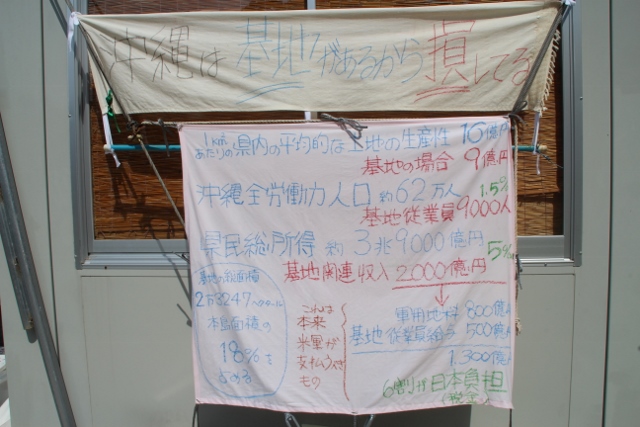 沖縄は基地があるから損してる
1k㎡あたりの県内の平均的な土地の生産性 16億円
基地の場合 9億円
沖縄全労働力人口 約62万人
1.5%
基地従業員9000人
県民総所得 約3兆9000億円
5%
基地関連収入 2,000億円
基地の総面積
2万3247ヘクタール
本島面積の
18%を
占める
これは
本来
米軍が
支払うべき
もの
軍用地料 800億
基地従業員給与 500億
1,300億
6割が日本負担
(税金)